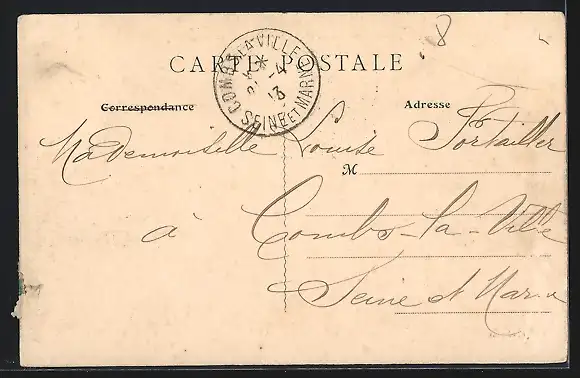 8
CARTE POSTALE
COMBS-LA-VILLE
SEINE ET MARNE
Correspondance
Adresse
Mademoiselle Louise Portallier
M
à Combs-la-Ville
Seine et Marne